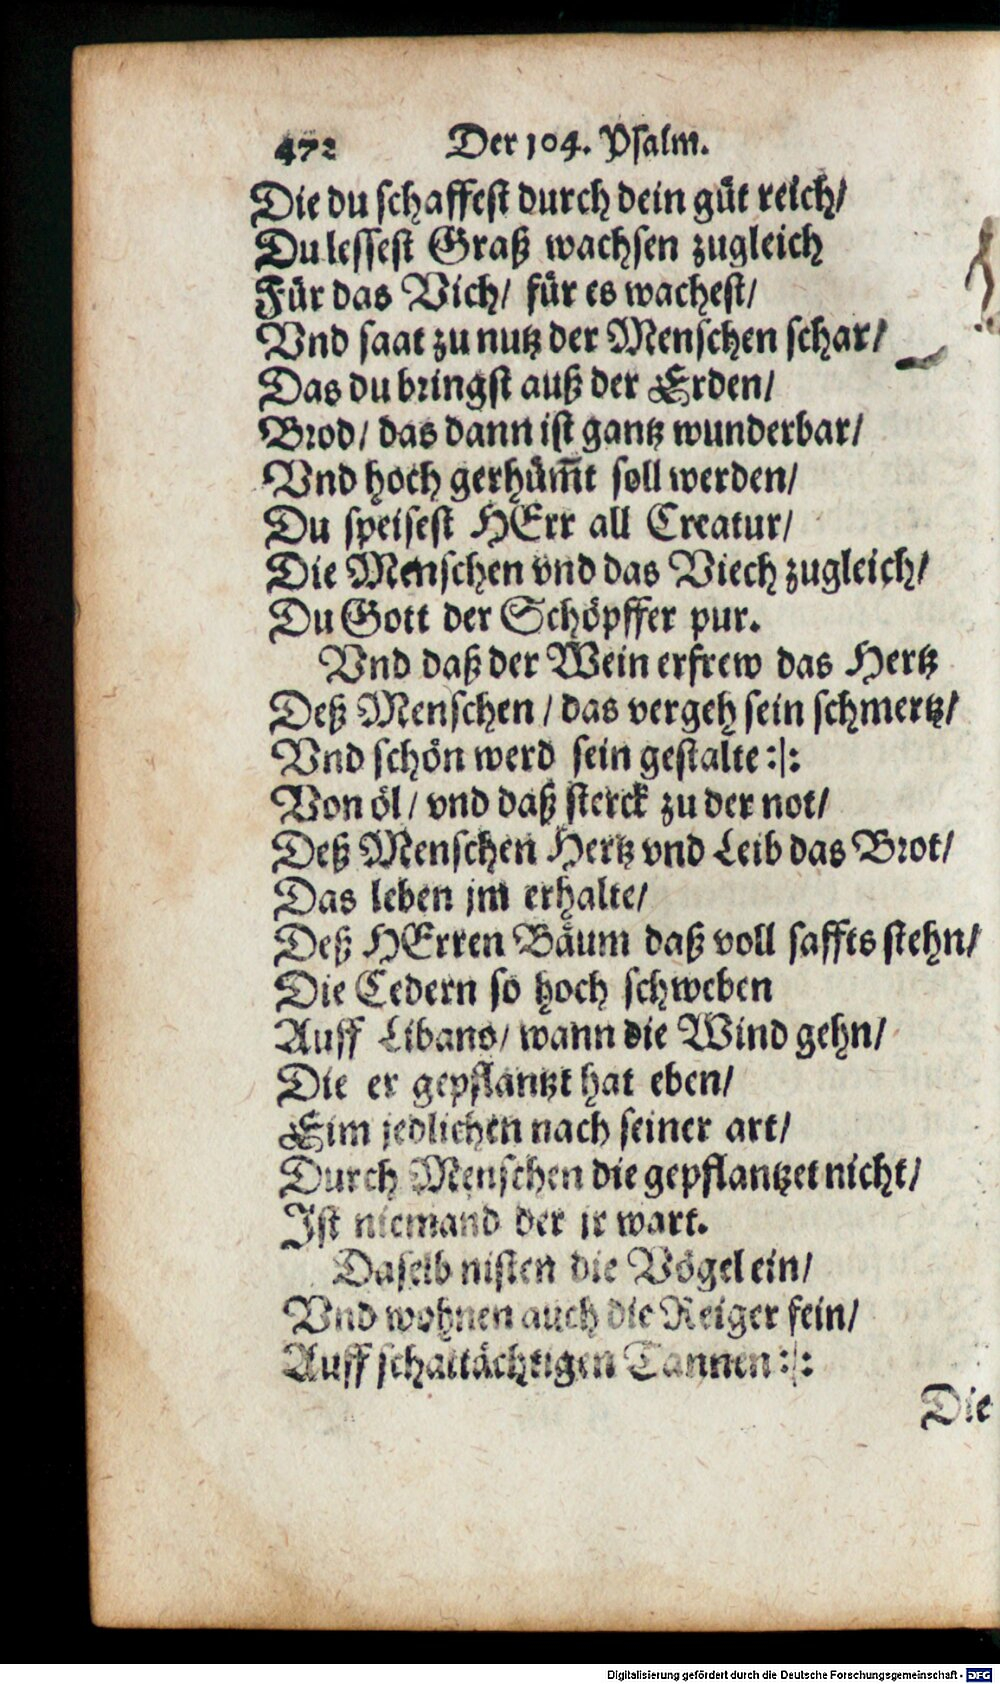 472 Der 104. Psalm.
Die du schaffest durch dein güt reich/
Du lessest Graß wachsen zugleich
Für das Vich/ für es wachest/
Vnd saat zu nutz der Menschen schar/
Das du bringst auß der Erden/
Brod/ das dann ist gantz wunderbar/
Vnd hoch gerhüm̃t soll werden/
Du speisest HErr all Creatur/
Die Menschen vnd das Viech zugleich/
Du Gott der Schöpffer pur.
Vnd daß der Wein erfrew das Hertz
Deß Menschen/ das vergeh sein schmertz/
Vnd schön werd sein gestalte :|:
Von öl/ vnd daß sterck zu der not/
Deß Menschen Hertz vnd Leib das Brot/
Das leben jm erhalte/
Deß HErren Bäum daß voll saffts stehn/
Die Cedern so hoch schweben
Auff Libano/ wann die Wind gehn/
Die er gepflantzt hat eben/
Eim jedlichen nach seiner art/
Durch Menschen die gepflantzet nicht/
Ist niemand der jr wart.
Daselb nisten die Vögel ein/
Vnd wohnen auch die Reiger fein/
Auff schattächtigen Tannen :|:
Die
Digitalisierung gefördert durch die Deutsche Forschungsgemeinschaft - DFG